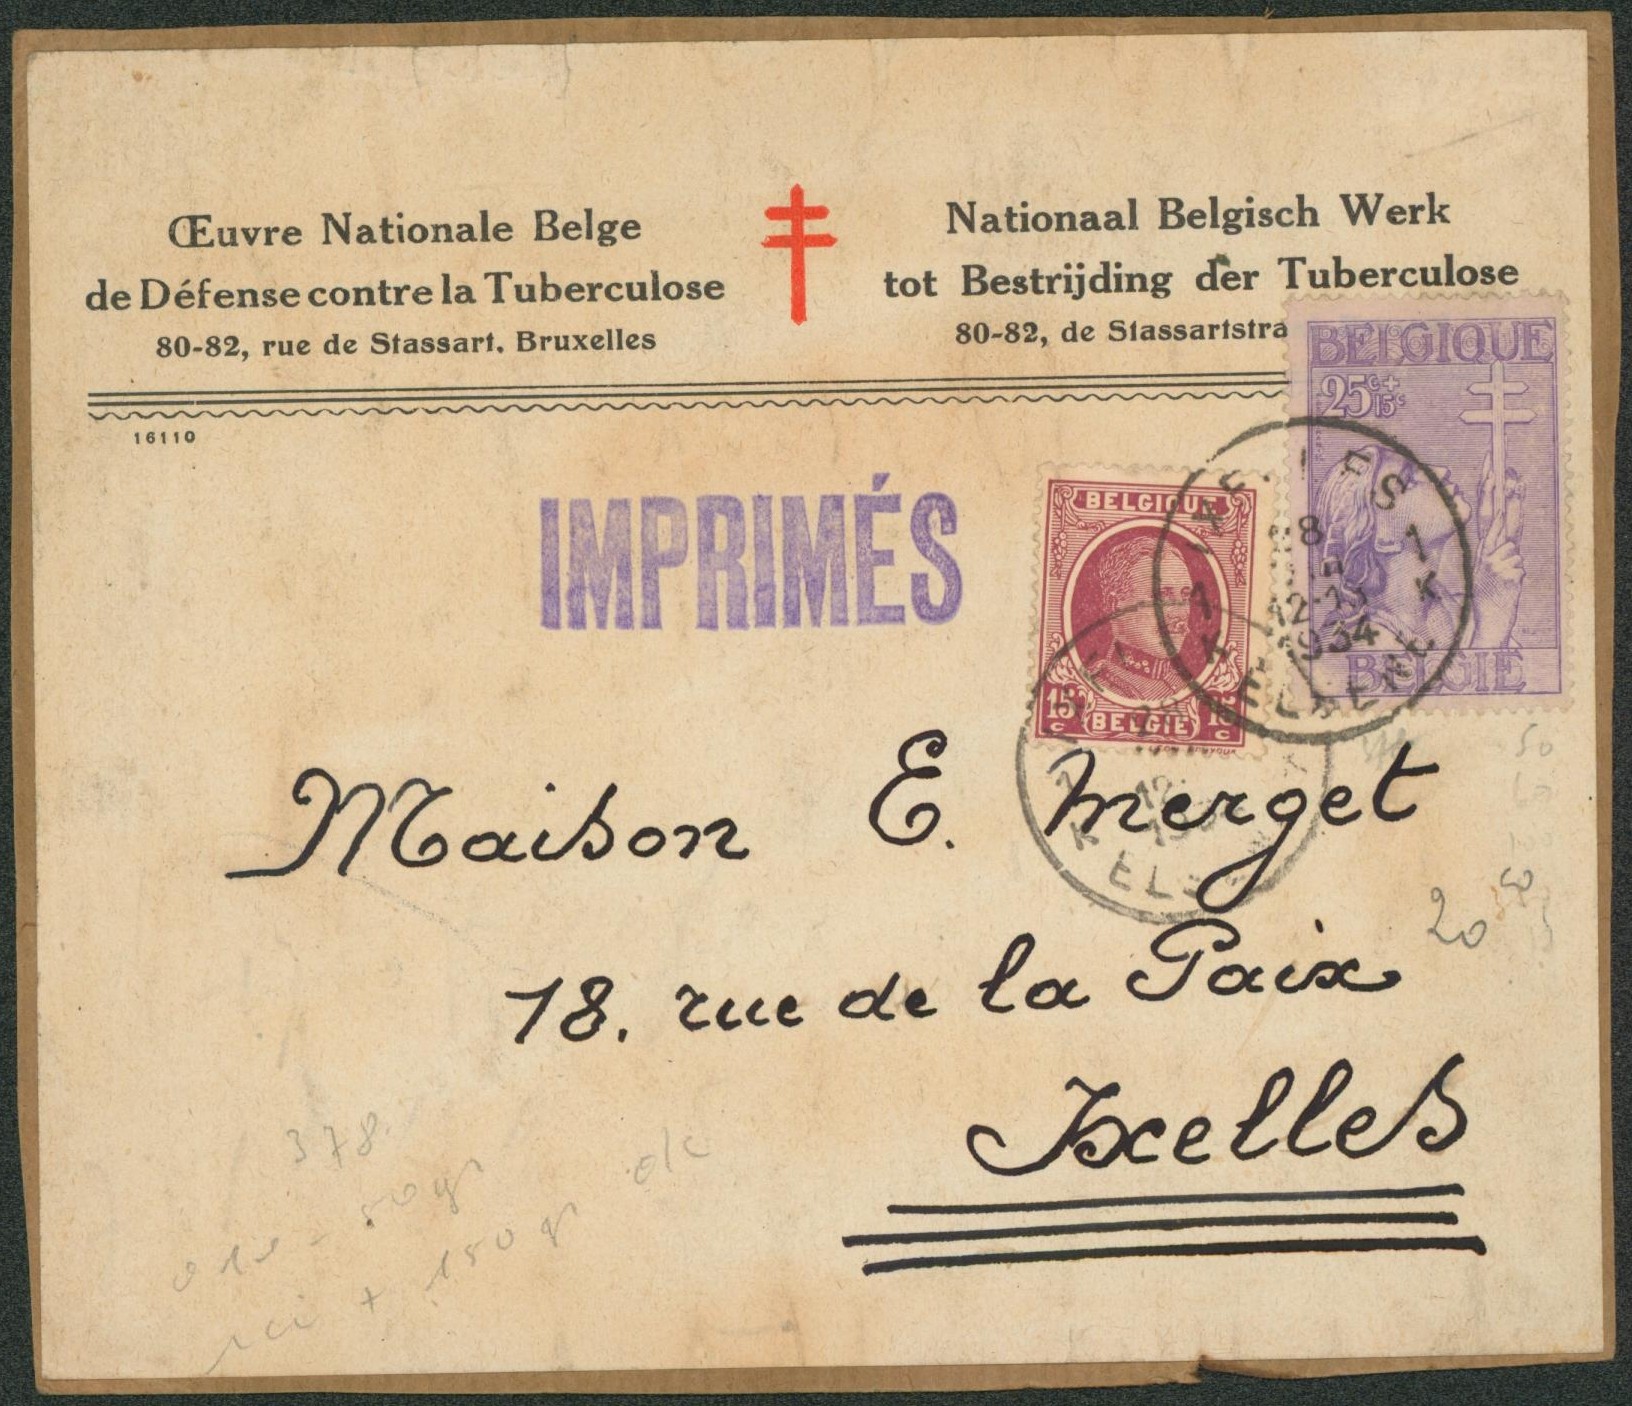 Œuvre Nationale Belge
de Défense contre la Tuberculose
80-82, rue de Stassart, Bruxelles
Nationaal Belgisch Werk
tot Bestrijding der Tuberculose
80-82, de Stassartstra
16110
BELGIQUE
25c+
15c
BELGIË
IMPRIMÉS
BELGIQUE
15 c 15 c
BELGIË
1 1
K K
28
12-13
1934
Maison E. Merget
18, rue de la Paix
Ixelles
20
50
378
50gr
+ 150 gr ok